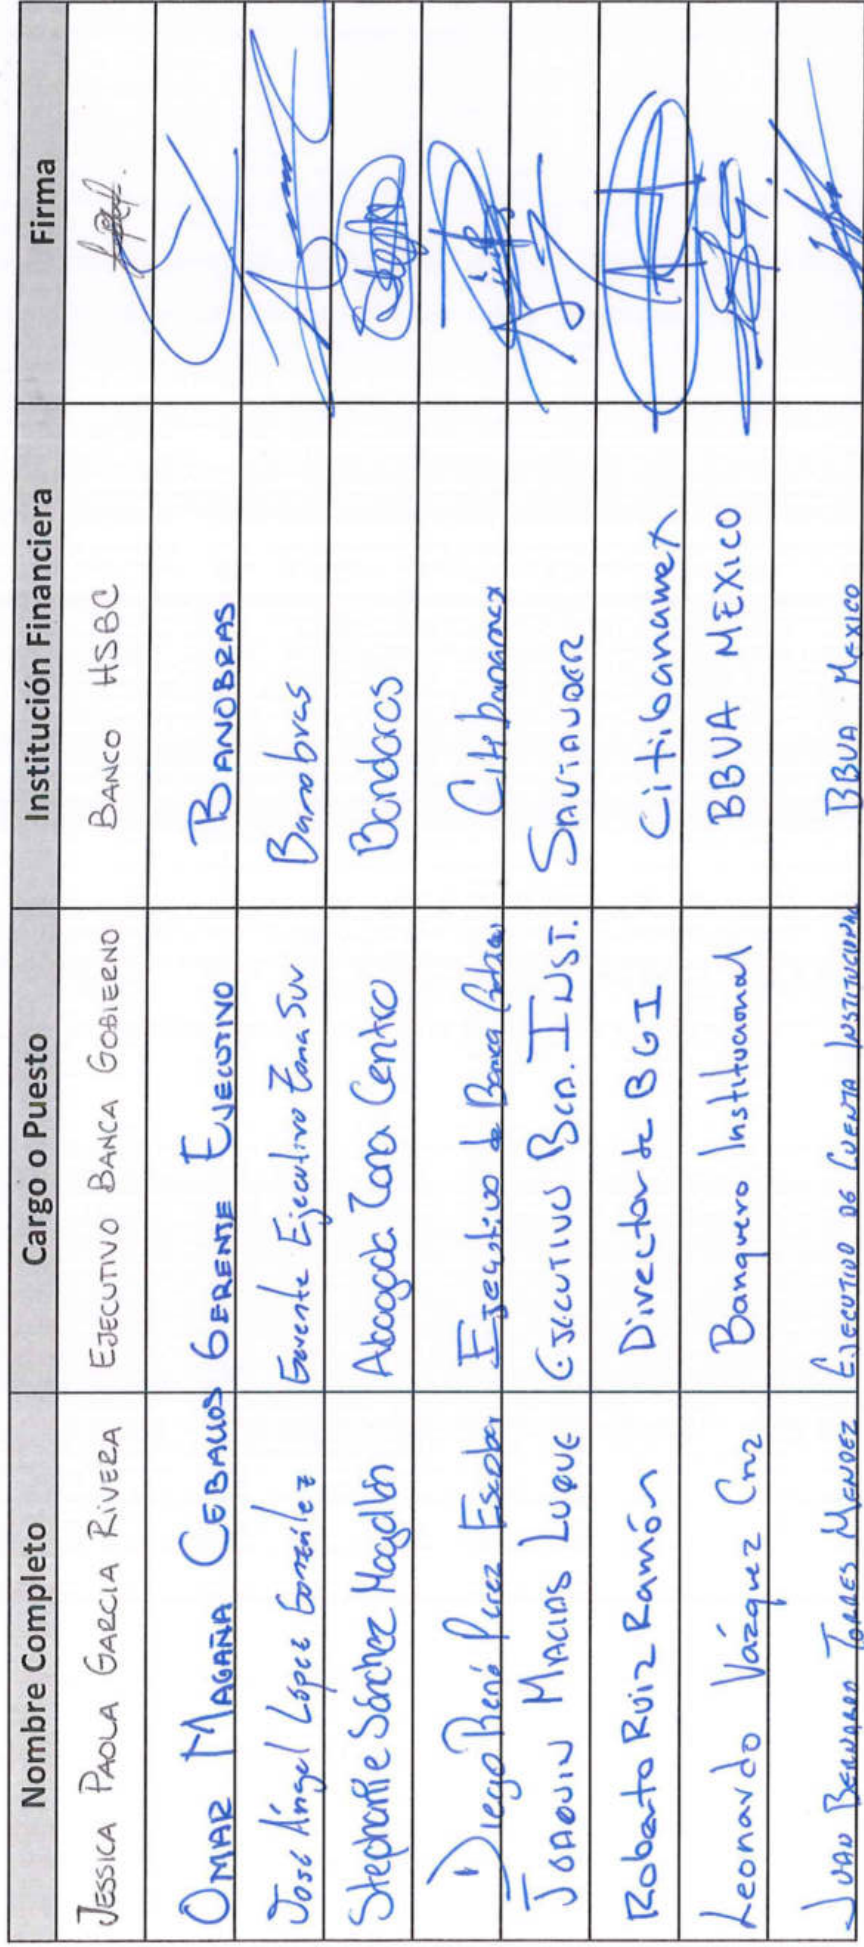 Nombre Completo Cargo o Puesto Institución Financiera Firma
JESSICA PAOLA GARCIA RIVERA EJECUTIVO BANCA GOBIERNO BANCO HSBC
OMAR MAGAÑA CEBALLOS GERENTE EJECUTIVO BANOBRAS
José Ángel López González Gerente Ejecutivo Zona Sur Banobras
Stephanie Sánchez Magallón Abogada Zona Centro
Diego René Perez Escobar Ejecutivo de Banca Citibanamex
JOAQUIN MACIAS LUQUE EJECUTIVO BCA. INST. SANTANDER
Roberto Ruiz Ramón Director de BGI Citibanamex
Leonardo Vázquez Cruz Banquero Institucional BBVA MEXICO
JUAN BERNARDO TORRES MENDEZ EJECUTIVO DE CUENTA INSTITUCIONAL BBVA MEXICO